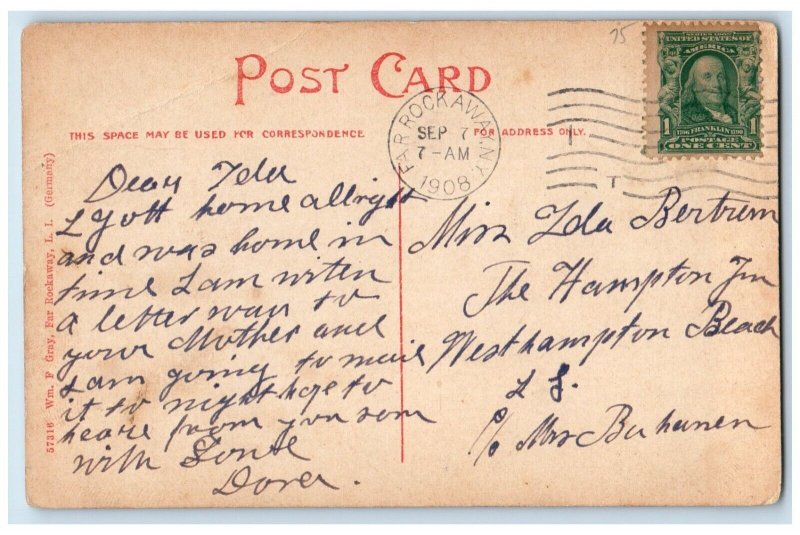 75
SERIES 1902
UNITED STATES OF
AMERICA
1706 FRANKLIN 1790
1 POSTAGE 1
ONE CENT
POST CARD
FAR ROCKAWAY, N.Y.
SEP 7
7-AM
1908
T
THIS SPACE MAY BE USED FOR CORRESPONDENCE
FOR ADDRESS ONLY.
57316 Wm. F Gray, Far Rockaway, L. I. (Germany)
Dear Ida
I gott home allright
and was home in
time I am writen
a letter way to
your Mother and
I am going to mail
it to night hope to
heare from you som
with Love
Dora.
Miss Ida Bertrem
The Hampton Inn
Westhampton Beach
L I.
c/o Mrs Buhanen